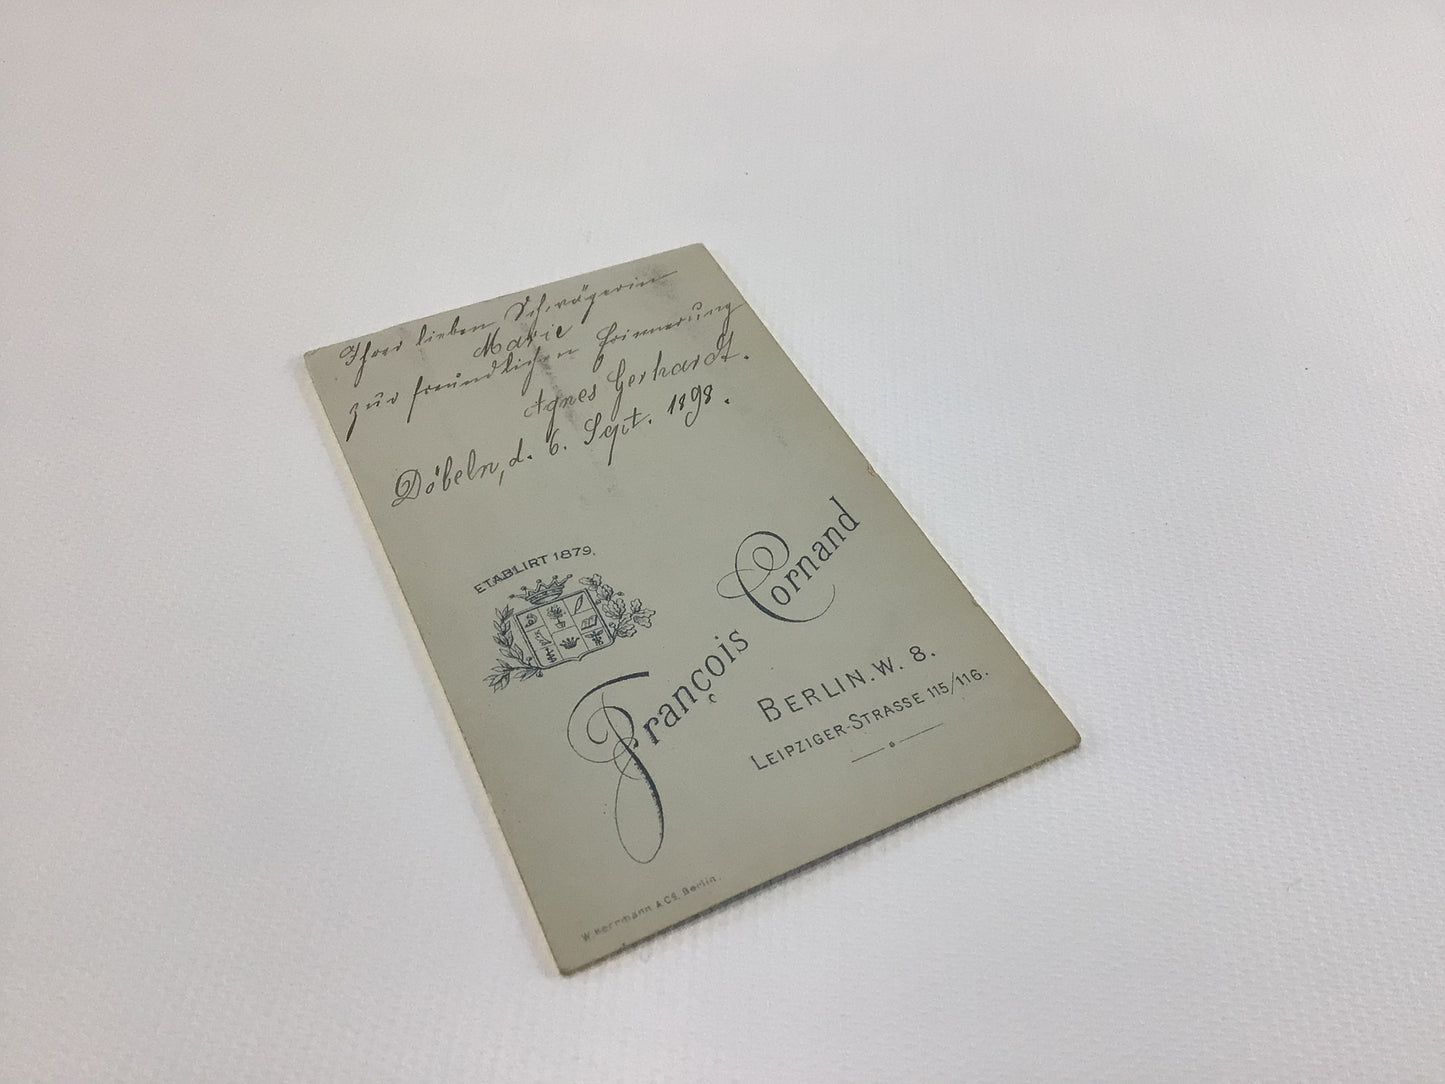 Ihrer lieben Schwägerin
Marie
zur freundlichen Erinnerung
Agnes Gerhardt.
Döbeln, d. 6. Sept. 1898.
ETABLIRT 1879.
François Cornand
BERLIN. W. 8.
LEIPZIGER-STRASSE 115/116.
W. Herrmann & Co. Berlin.